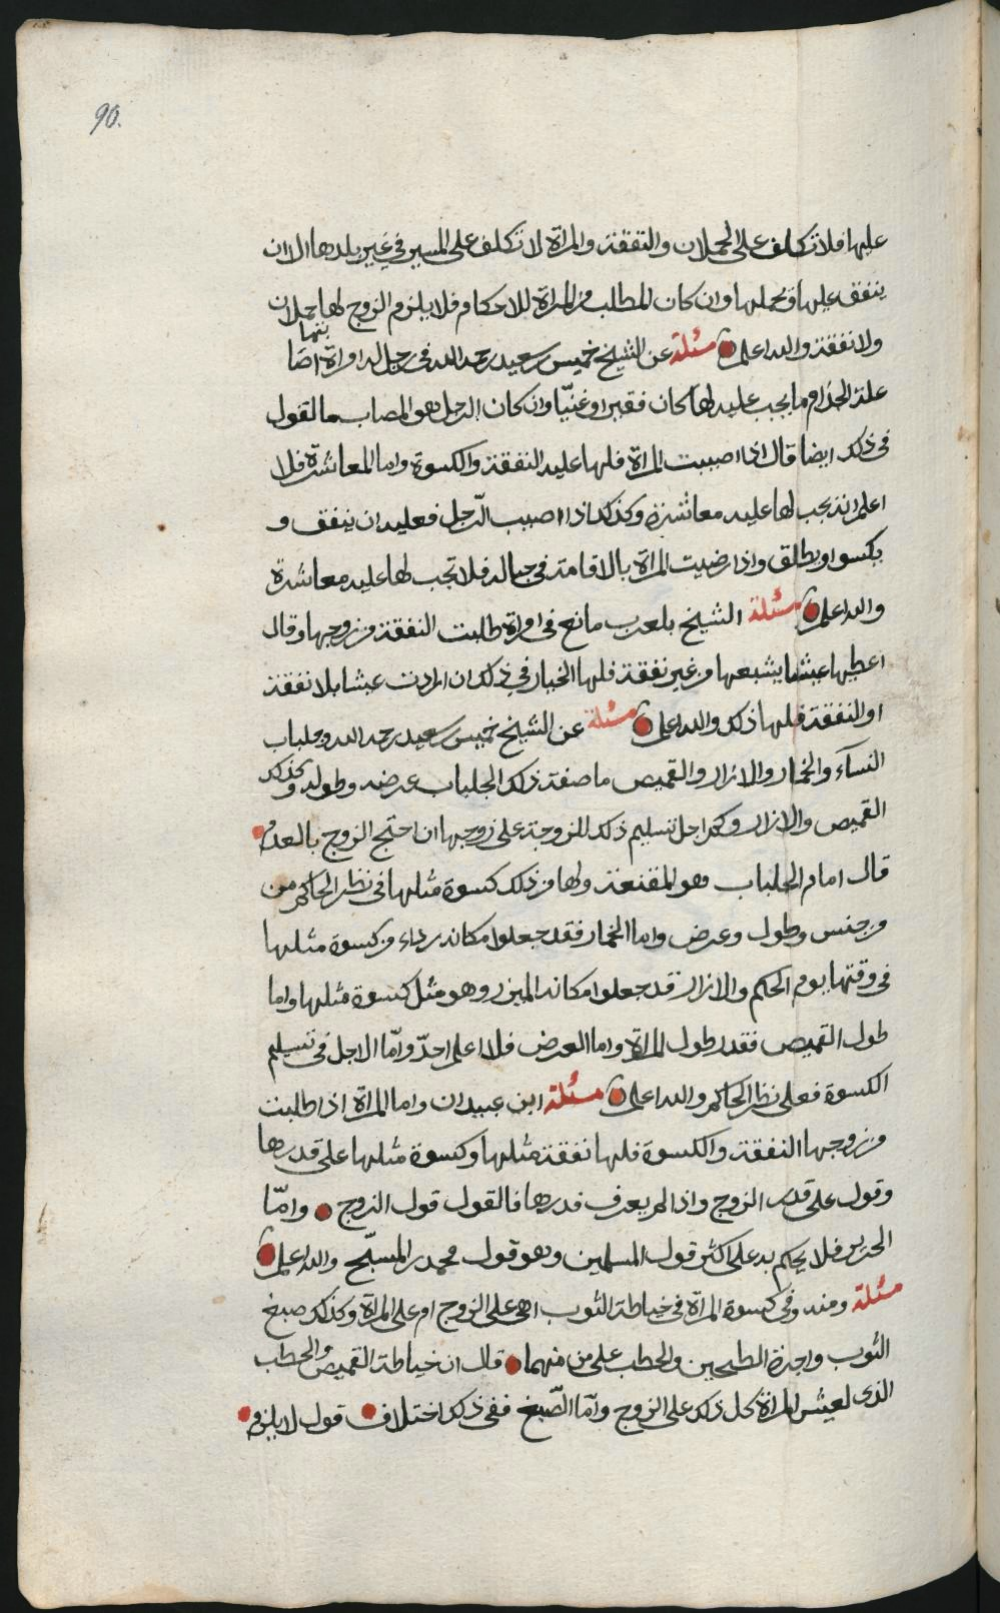 90.
عليها فلا تكلف على الحملان والنفقة والمراة لا تكلف على المسير في غير بلدها الا ان
ينفق عليها ويحملها وان كان المطلب من المراة للاحكام فلا يلزم الزوج لها حملان
ولا نفقة والله اعلم مسئلة عن الشيخ خميس بن سعيد رحمه الله في رجل له امراة اصابتها
علة الجذام ما يجب عليه لها كان فقيرا او غنيّا وان كان الرجل هو المصاب ما القول
في ذلك ايضا قال اذا اصيبت المراة فلها عليه النفقة والكسوة واما المعاشرة فلا
اعلم انه يجب لها عليه معاشرة وكذلك اذا اصيب الرّجل فعليه ان ينفق و
يكسو او يطلق واذا رضيت المراة بالاقامة في حباله فلا تجب لها عليه معاشرة
والله اعلم مسئلة الشيخ بلعرب مانع في امراة طلبت النفقة من زوجها وقال
اعطيها عيشا يشبعها من غير نفقة فلها الخيار في ذلك ان ارادت عيشا بلا نفقة
او النفقة فلها ذلك والله اعلم مسئلة عن الشيخ خميس بن سعيد رحمه الله وجلباب
النسآء والخمار والازار والقميص ما صفة ذلك الجلباب عرضه وطوله وكذلك
القميص والازار وكم اجل تسليم ذلك للزوجة على زوجها ان احتج الزوج بالعدم
قال اما الجلباب فهو المقنعة ولها من ذلك كسوة مثلها في نظر الحاكم من
من جنس وطول وعرض واما الخمار فقد جعلوا مكانه رداء من كسوة مثلها
في وقتها يوم الحكم والازار قد جعلوا مكانه الميزر وهو مثل كسوة مثلها واما
طول القميص فقدر طول المراة واما العرض فلا اعلم احدّ وامّا الاجل في تسليم
الكسوة فعلى نظر الحاكم والله اعلم مسئلة ابن عبيدان واما المراة اذا طلبت
من زوجها النفقة والكسوة فلها نفقة مثلها وكسوة مثلها على قدرها
وقول على قدر الزوج واذا لم يعرف قدرها فالقول قول الزوج وامّا
الحرير فلا يحكم به على اكثر قول المسلمين وهو قول محمد بن المسبّح والله اعلم
مسئلة ومنه وفي كسوة المراة في خياطة الثوب اهي على الزوج ام على المراة وكذلك صبغ
الثوب واجرة الطحين والحطب على من منهما قال ان خياطة القميص والحطب
الذي لعيش المراة كل ذلك على الزوج وامّا الصّبغ ففي ذلك اختلاف قول لا يلزم